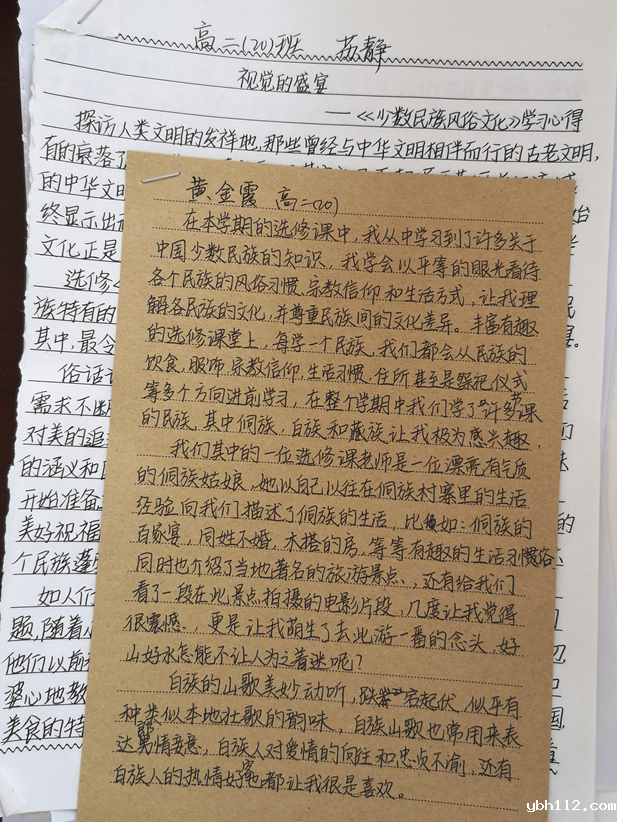 高二(20)班 苏静
视觉的盛宴
——《少数民族风俗文化》学习心得
探访人类文明的发祥地,那些曾经与中华文明相伴而行的古老文明,
有的衰落了
的中华文明
终显示出
文化正是
选修
族特有的
其中,最令
俗话
需求不断
对美的追
的涵义和
开始准备
美好祝福
个民族蓬
如人们
题,随着
他们以前
婆心地教
美食的特
黄金霞 高二(20)
在本学期的选修课中,我从中学习到了许多关于
中国少数民族的知识,我学会以平等的眼光看待
各个民族的风俗习惯、宗教信仰和生活方式,让我理
解各民族的文化,并尊重民族间的文化差异。丰富有趣
的选修课堂上,每学一个民族,我们都会从民族的
饮食、服饰、宗教信仰、生活习惯、住所甚至是祭祀仪式
等多个方向进前学习,在整个学期中我们学了许多课
的民族,其中侗族,白族和藏族让我极为感兴趣,
我们其中的一位选修课老师是一位漂亮有气质
的侗族姑娘,她以自己以往在侗族村寨里的生活
经验向我们描述了侗族的生活,比如:侗族的
百家宴,同姓不婚,木搭的房,等等有趣的生活习俗
同时也介绍了当地著名的旅游景点、,还有给我们
看了一段在此景点拍摄的电影片段,几度让我觉得
很震撼、,更是让我萌生了去此游一番的念头,好
山好水怎能不让人为之着迷呢?
白族的山歌美妙动听,跌宕起伏,似乎有
种类似本地壮歌的韵味,白族山歌也常用来表
达爱情,白族人对爱情的向往和忠贞不渝,还有
白族人的热情好客都让我很是喜欢。
ybh112.com